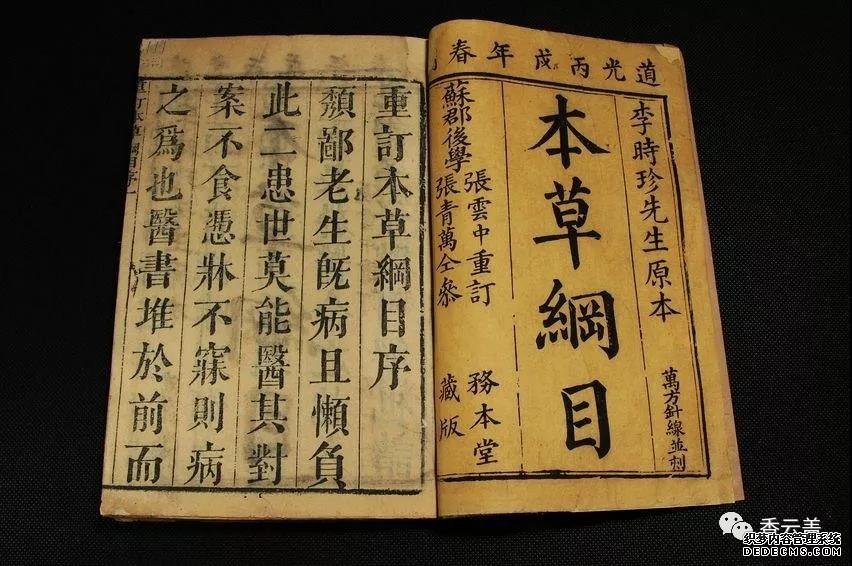 道光丙戌年春
李時珍先生原本
萬方針線並刻
本草綱目
張雲中重訂
蘇郡後學
張青萬仝參
務本堂
藏版
重訂本草綱目序
頽鄙老生旣病且懶負
此二患世莫能醫其對
案不食憑牀不寐則病
之爲也醫書堆於前而
香云善
织梦内容管理系统
DEDECMS.COM